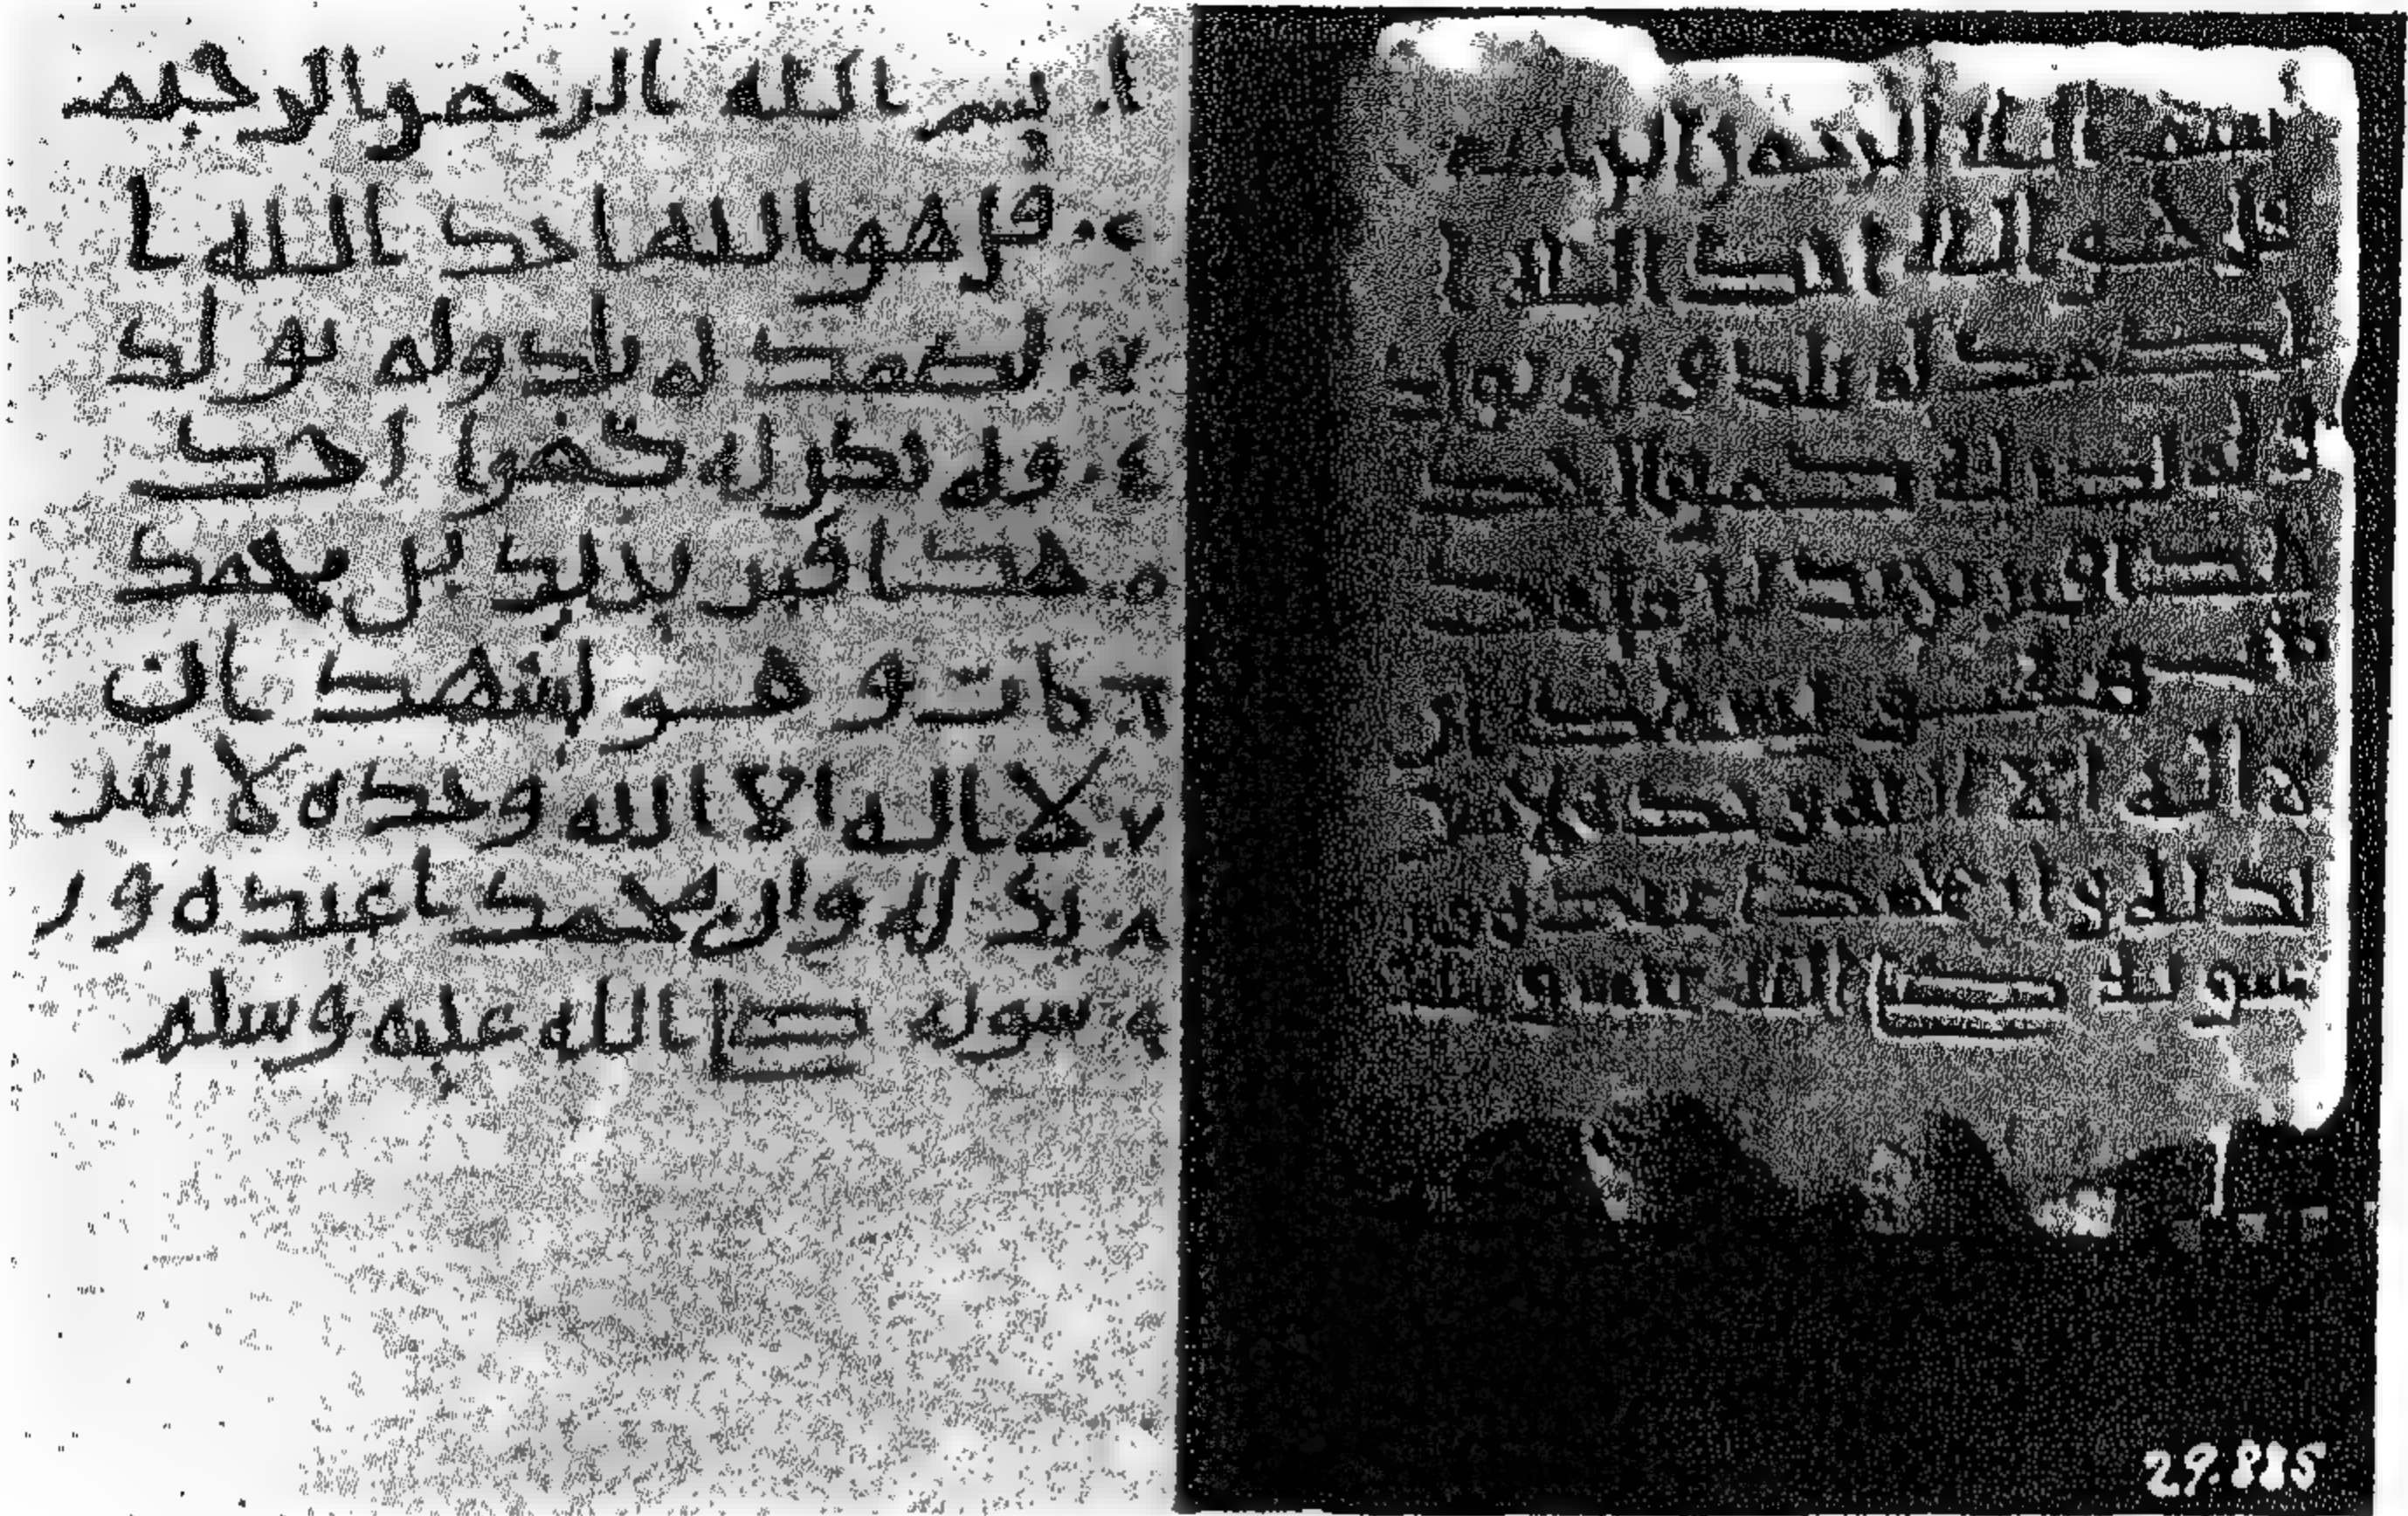 بسم الله الرحمن الرحيم
قل هو الله احد الله ا
لصمد لم يلد و لم يولد
و لم يكن له كفوا احد
هذا قبر
و هو يشهد ان
لا اله الا الله وحده لا شر
يك له و ان محمدا عبده ور
سوله صلى الله عليه و سلم
29.885
١. بسم الله الرحمن الرحيم
٢. قل هو الله احد الله ا
٣. لصمد لم يلد ولم يولد
٤. ولم يكن له كفوا احد
٥. هذا قبر يزيد بن محمد
٦. مات و هو يشهد ان
٧. لا اله الا الله وحده لا شر
٨. يك له وان محمدا عبده ور
٩. سوله صلى الله عليه وسلم